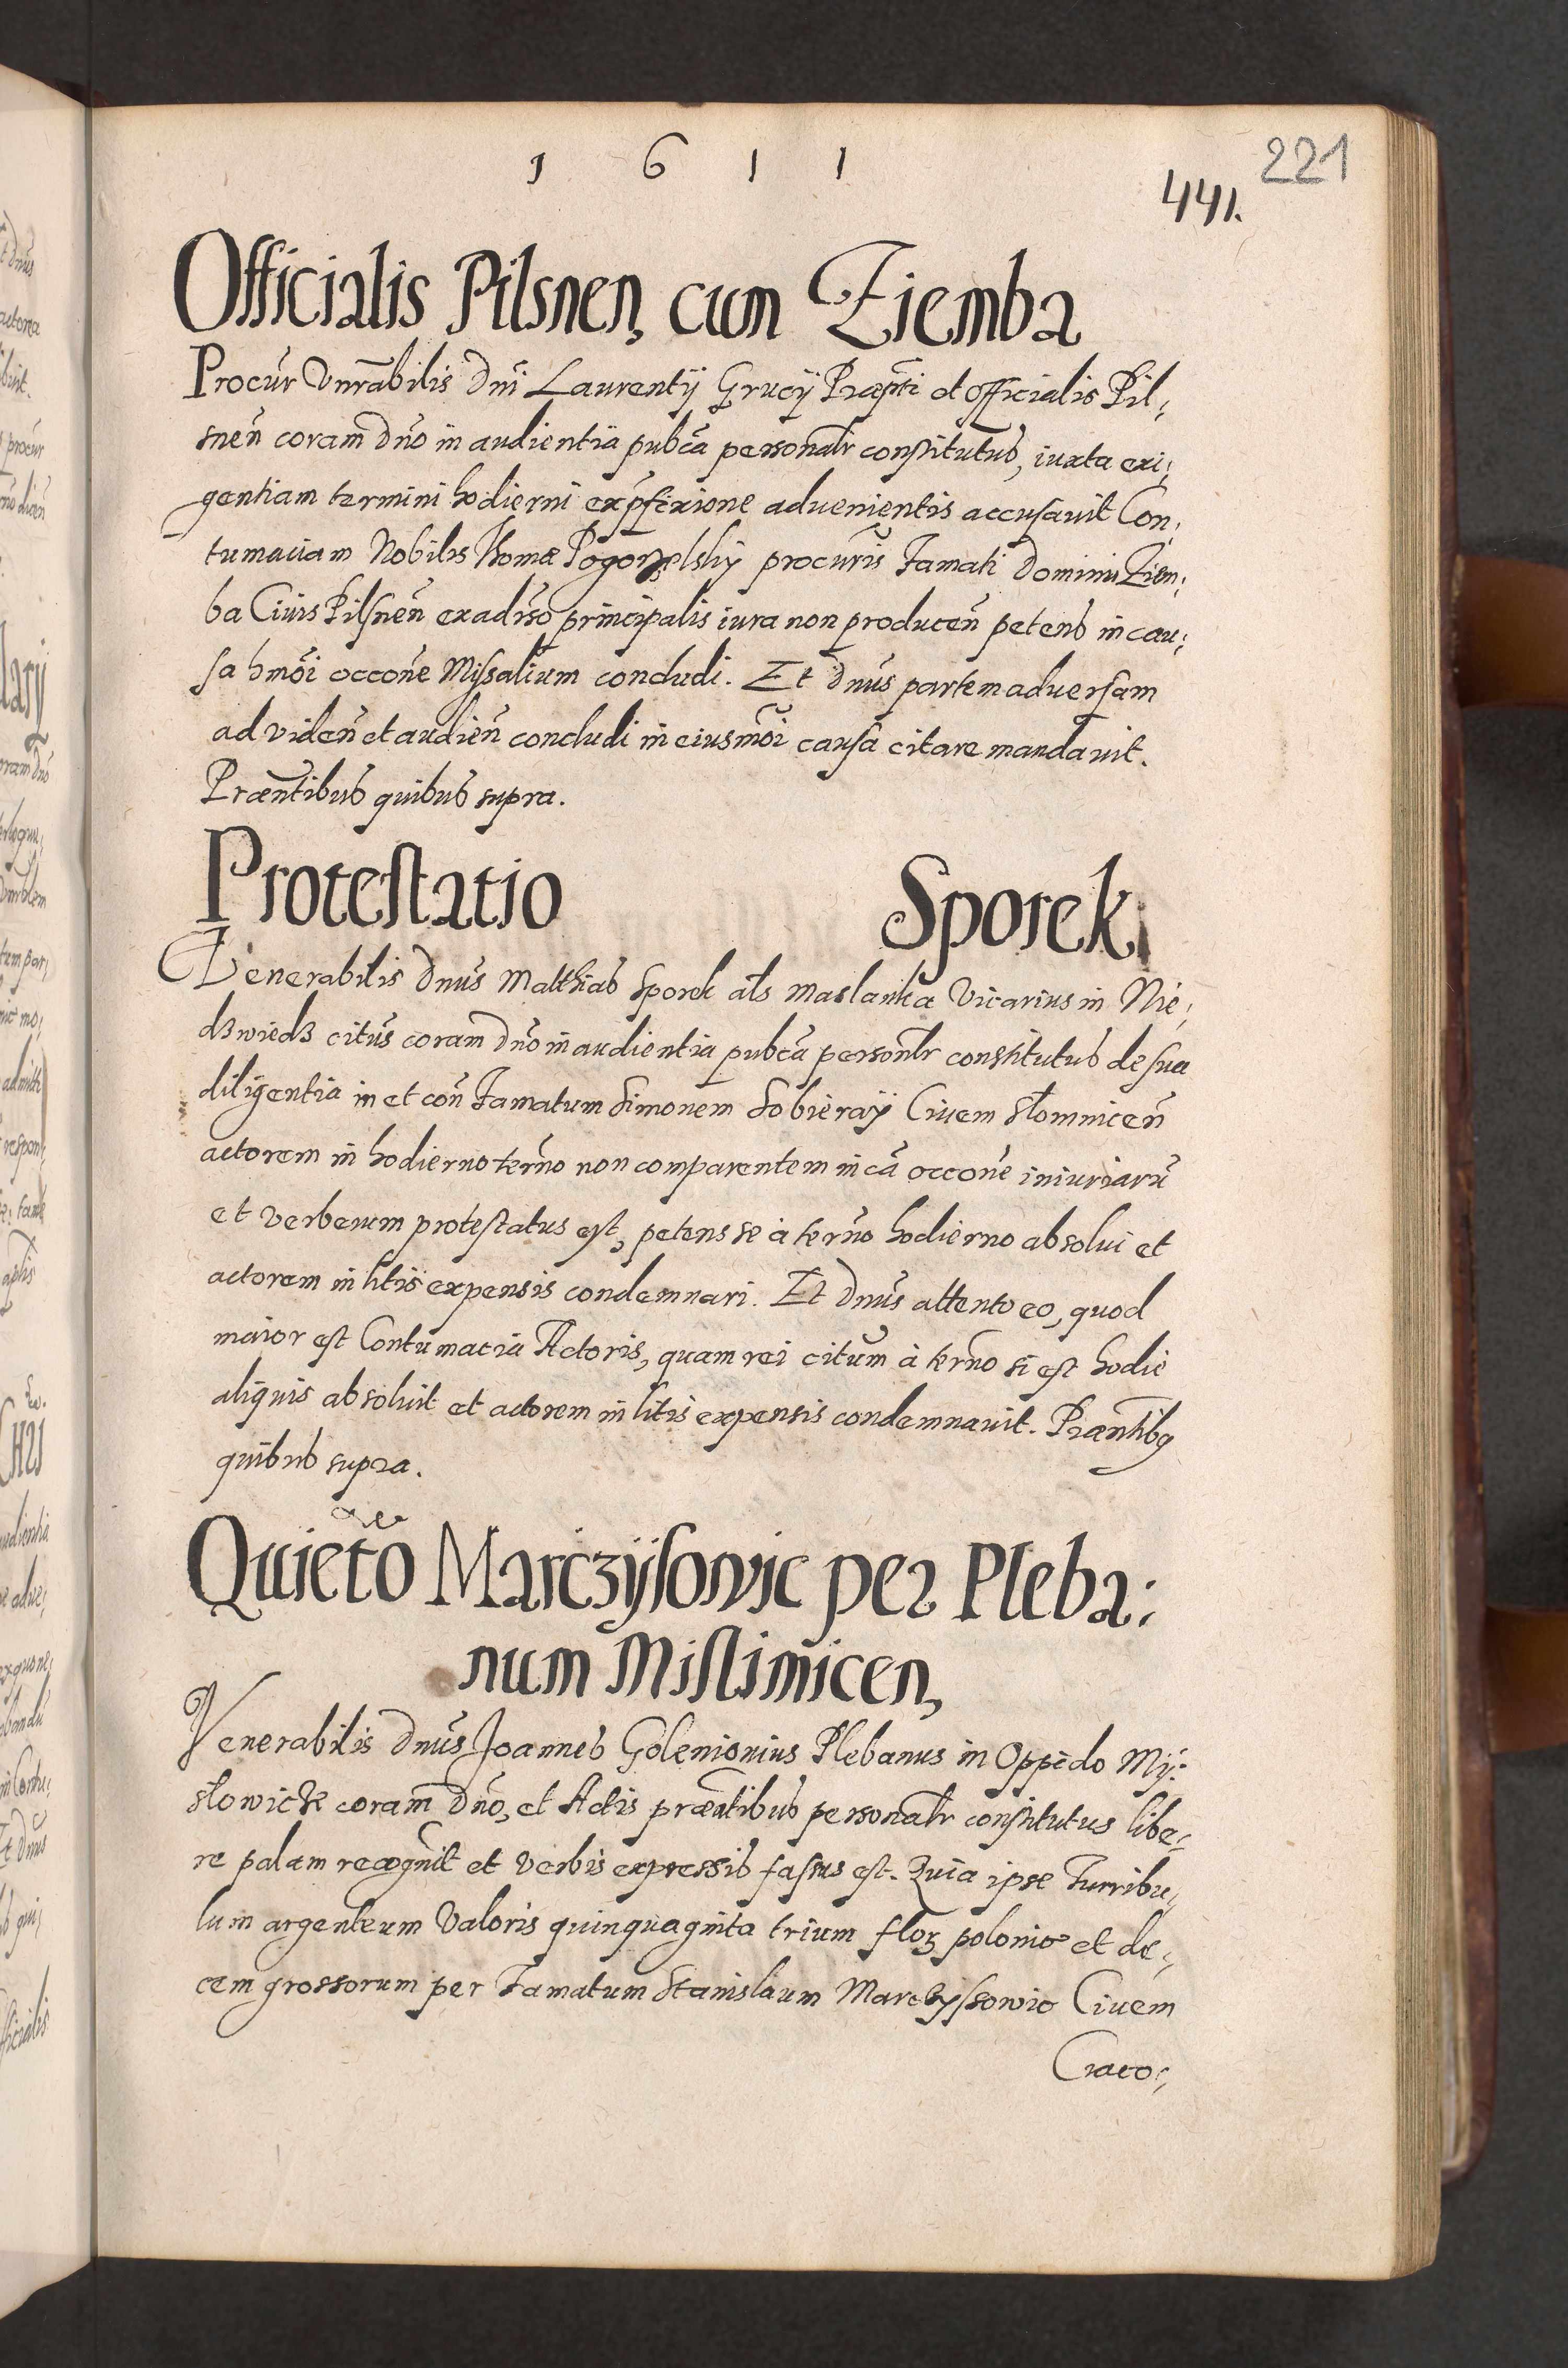 1 6 1 1
221
441.
Officialis Pilsnen, cum Ziemba
Procur Vnrabilis Dni Laurentij Grucij Præpti et Officialis Pil;
snen coram Dno in audientia pubca personalr constitutus, iuxta exi;
gentiam termini hodierni ex præfixione aduenientis accusauit Con;
tumaciam Nobilis Thomæ Pogorzelskij procuris Famati Domini Ziem;
ba Ciuis Pilsnen ex adrso principalis iura non producen petens in cau;
sa hmoi occone Missalium concludi. Et Dnus partem aduersam
ad viden et audien concludi in eiusmoi causa citare mandauit.
Præntibus quibus supra.
Protestatio Sporek
Venerabilis Dnus Matthias Sporek als Maslanka Vicarius in Nie;
dzwiedz citus coram Dno in audientia pubca personlr constitutus de sua
diligentia in et con Famatum Simonem Sobieraij Ciuem Słomnicen
actorem in hodierno terno non comparentem in ca occone iniuriaru
et verberum protestatus est, petens se à terno hodierno absolui et
actorem in litis expensis condemnari. Et Dnus attento eo, quod
maior est Contumacia Actoris, quam rei citum à terno si est hodie
aliquis absoluit et actorem in litis expensis condemnauit. Præntibq
quibus supra.
Quieto Marczijsowic per Pleba:
num Mistimicen,
Venerabilis Dnus Joannes Goleniouius Plebanus in Oppido Mij:
słowice coram Dno, et Actis præntibus personalr constitutus libe;
re palam recognit et verbis expressis fassus est. Quia ipse Turribu;
lum argenteum valoris quinquaginta trium floz polonic et de;
cem grossorum per Famatum Stanislaum Marczyssowic Ciuem
Craco;